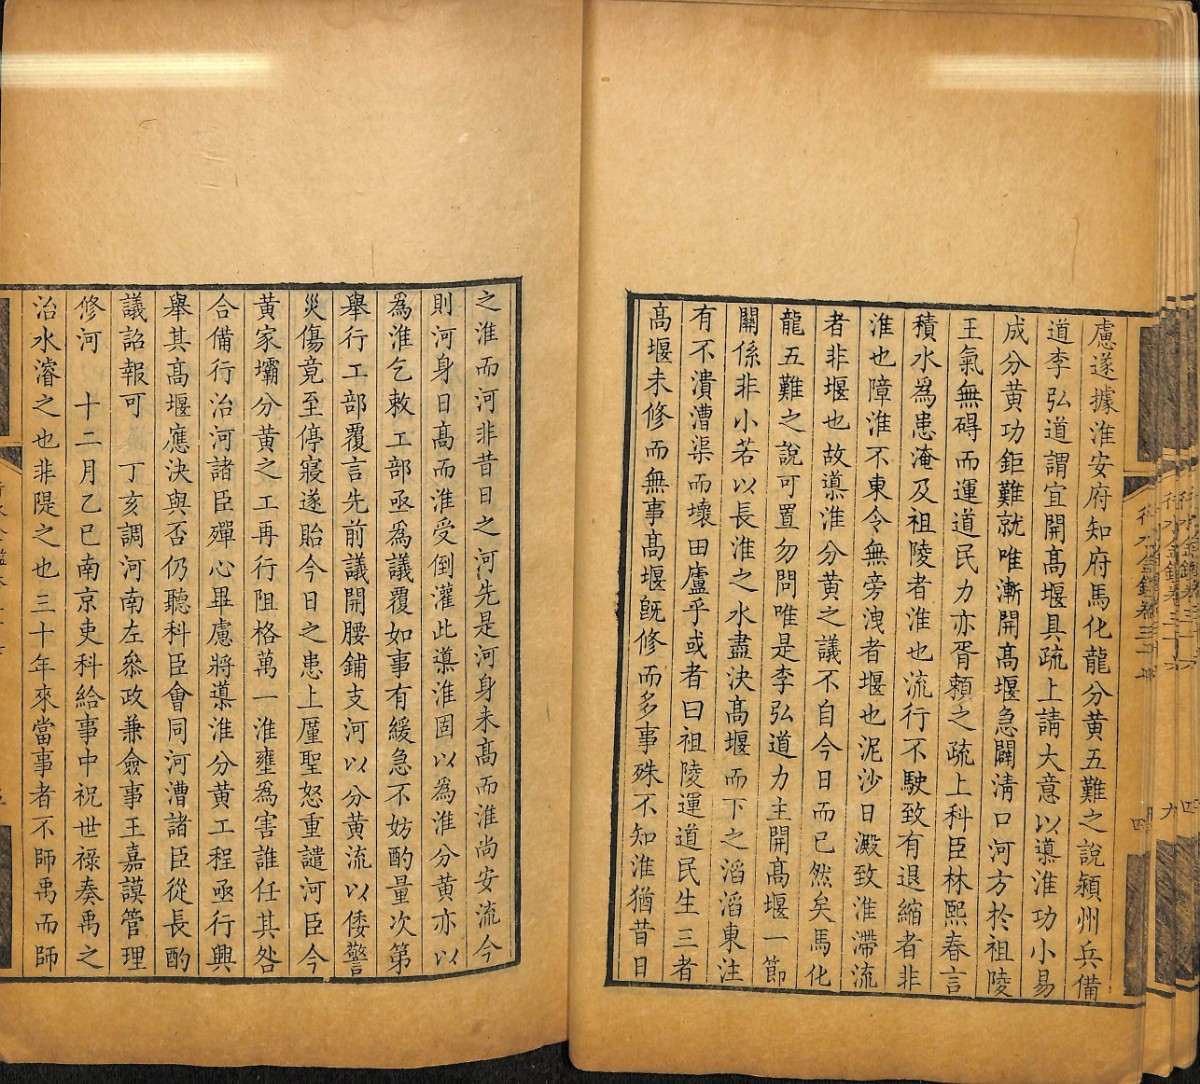 慮遂據淮安府知府馬化龍分黃五難之說潁州兵備
道李弘道謂宜開高堰具疏上請大意以導淮功小易
成分黃功鉅難就唯漸開高堰急闢淸口河方於祖陵
王氣無碍而運道民力亦胥賴之疏上科臣林熙春言
積水爲患淹及祖陵者淮也流行不駛致有退縮者非
淮也障淮不東令無旁洩者堰也泥沙日澱致淮滯流
者非堰也故導淮分黃之議不自今日而已然矣馬化
龍五難之說可置勿問唯是李弘道力主開高堰一節
關係非小若以長淮之水盡決高堰而下之滔滔東注
有不潰漕渠而壞田廬乎或者曰祖陵運道民生三者
高堰未修而無事高堰旣修而多事殊不知淮猶昔日
之淮而河非昔日之河先是河身未高而淮尚安流今
則河身日高而淮受倒灌此導淮固以爲淮分黃亦以
爲淮乞敕工部亟爲議覆如事有緩急不妨酌量次第
舉行工部覆言先前議開腰鋪支河以分黃流以倭警
災傷竟至停寢遂貽今日之患上厪聖怒重譴河臣今
黃家壩分黃之工再行阻格萬一淮壅爲害誰任其咎
合備行治河諸臣殫心畢慮將導淮分黃工程亟行興
舉其高堰應決與否仍聽科臣會同河漕諸臣從長酌
議詔報可 丁亥調河南左叅政兼僉事王嘉謨管理
修河 十二月乙巳南京吏科給事中祝世祿奏禹之
治水濬之也非隄之也三十年來當事者不師禹而師
行水金鑑卷三十